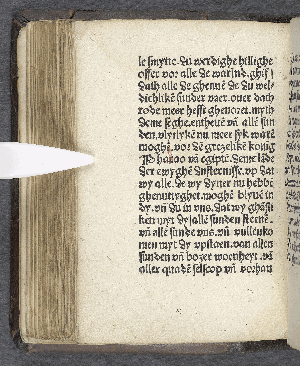 le smytte. du werdighe hillighe
offer vor alle de warlud. ghif
dath alle de ghenne de du wel-
dichlikē sunder vaer. ouer dath
rode meer hefft ghevoret. myth
deme seghe. entheuē vā alle sun
den. vlytlykē nu meer syk warē
moghē. vor dē grezelikē konig
Pharao vā egiptē. deme lāde
der ewyghē dusternisse. vp dat
wy alle. de wy dyner nu hebbē
ghenuttyghet. moghē blyuē in
dy. vñ du in vns. dat wy ghēsli
ken myt dy alle sunden
vñ alle sunde vns. vñ vullenko
men myt dy vpstaen. van allen
sunden vñ bozer wonheyt. vā
aller quadē selscop vñ vorhan